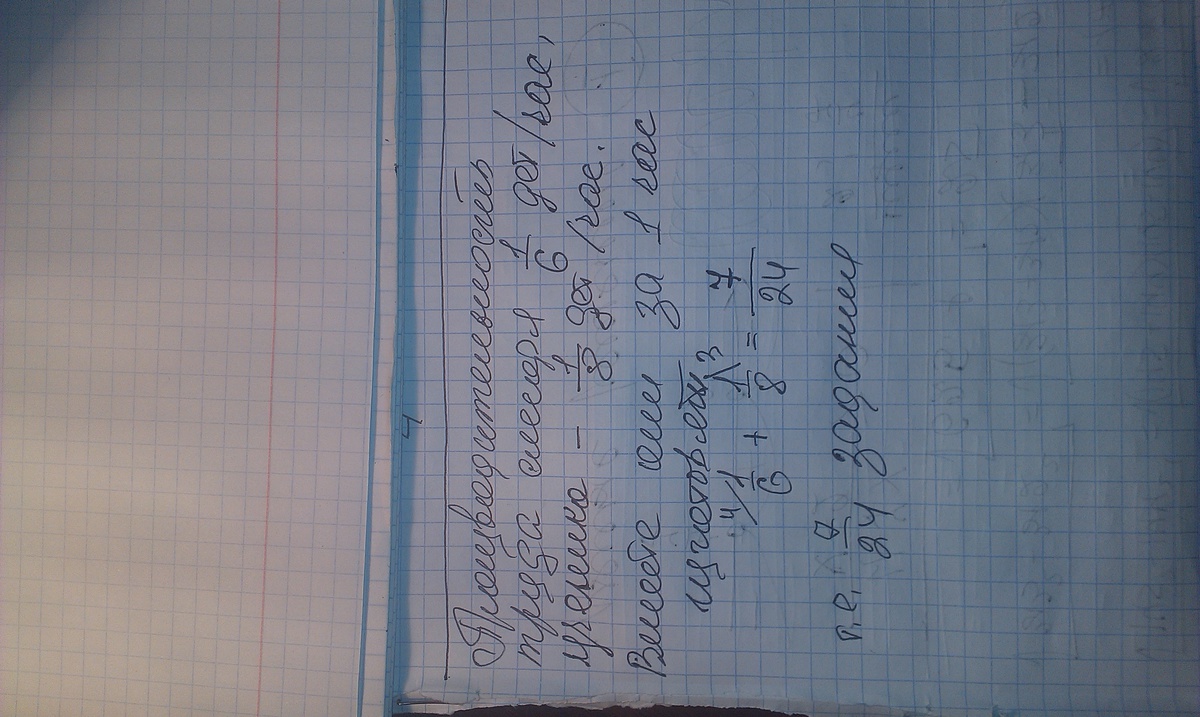 4
Производительность
труда слесаря 1/6 дет/час,
ученика - 1/8 дет/час.
Вместе они за 1 час
изготовят
4/ 1/6 + 1/8 \3 = 7/24
т.е. 7/24 задания